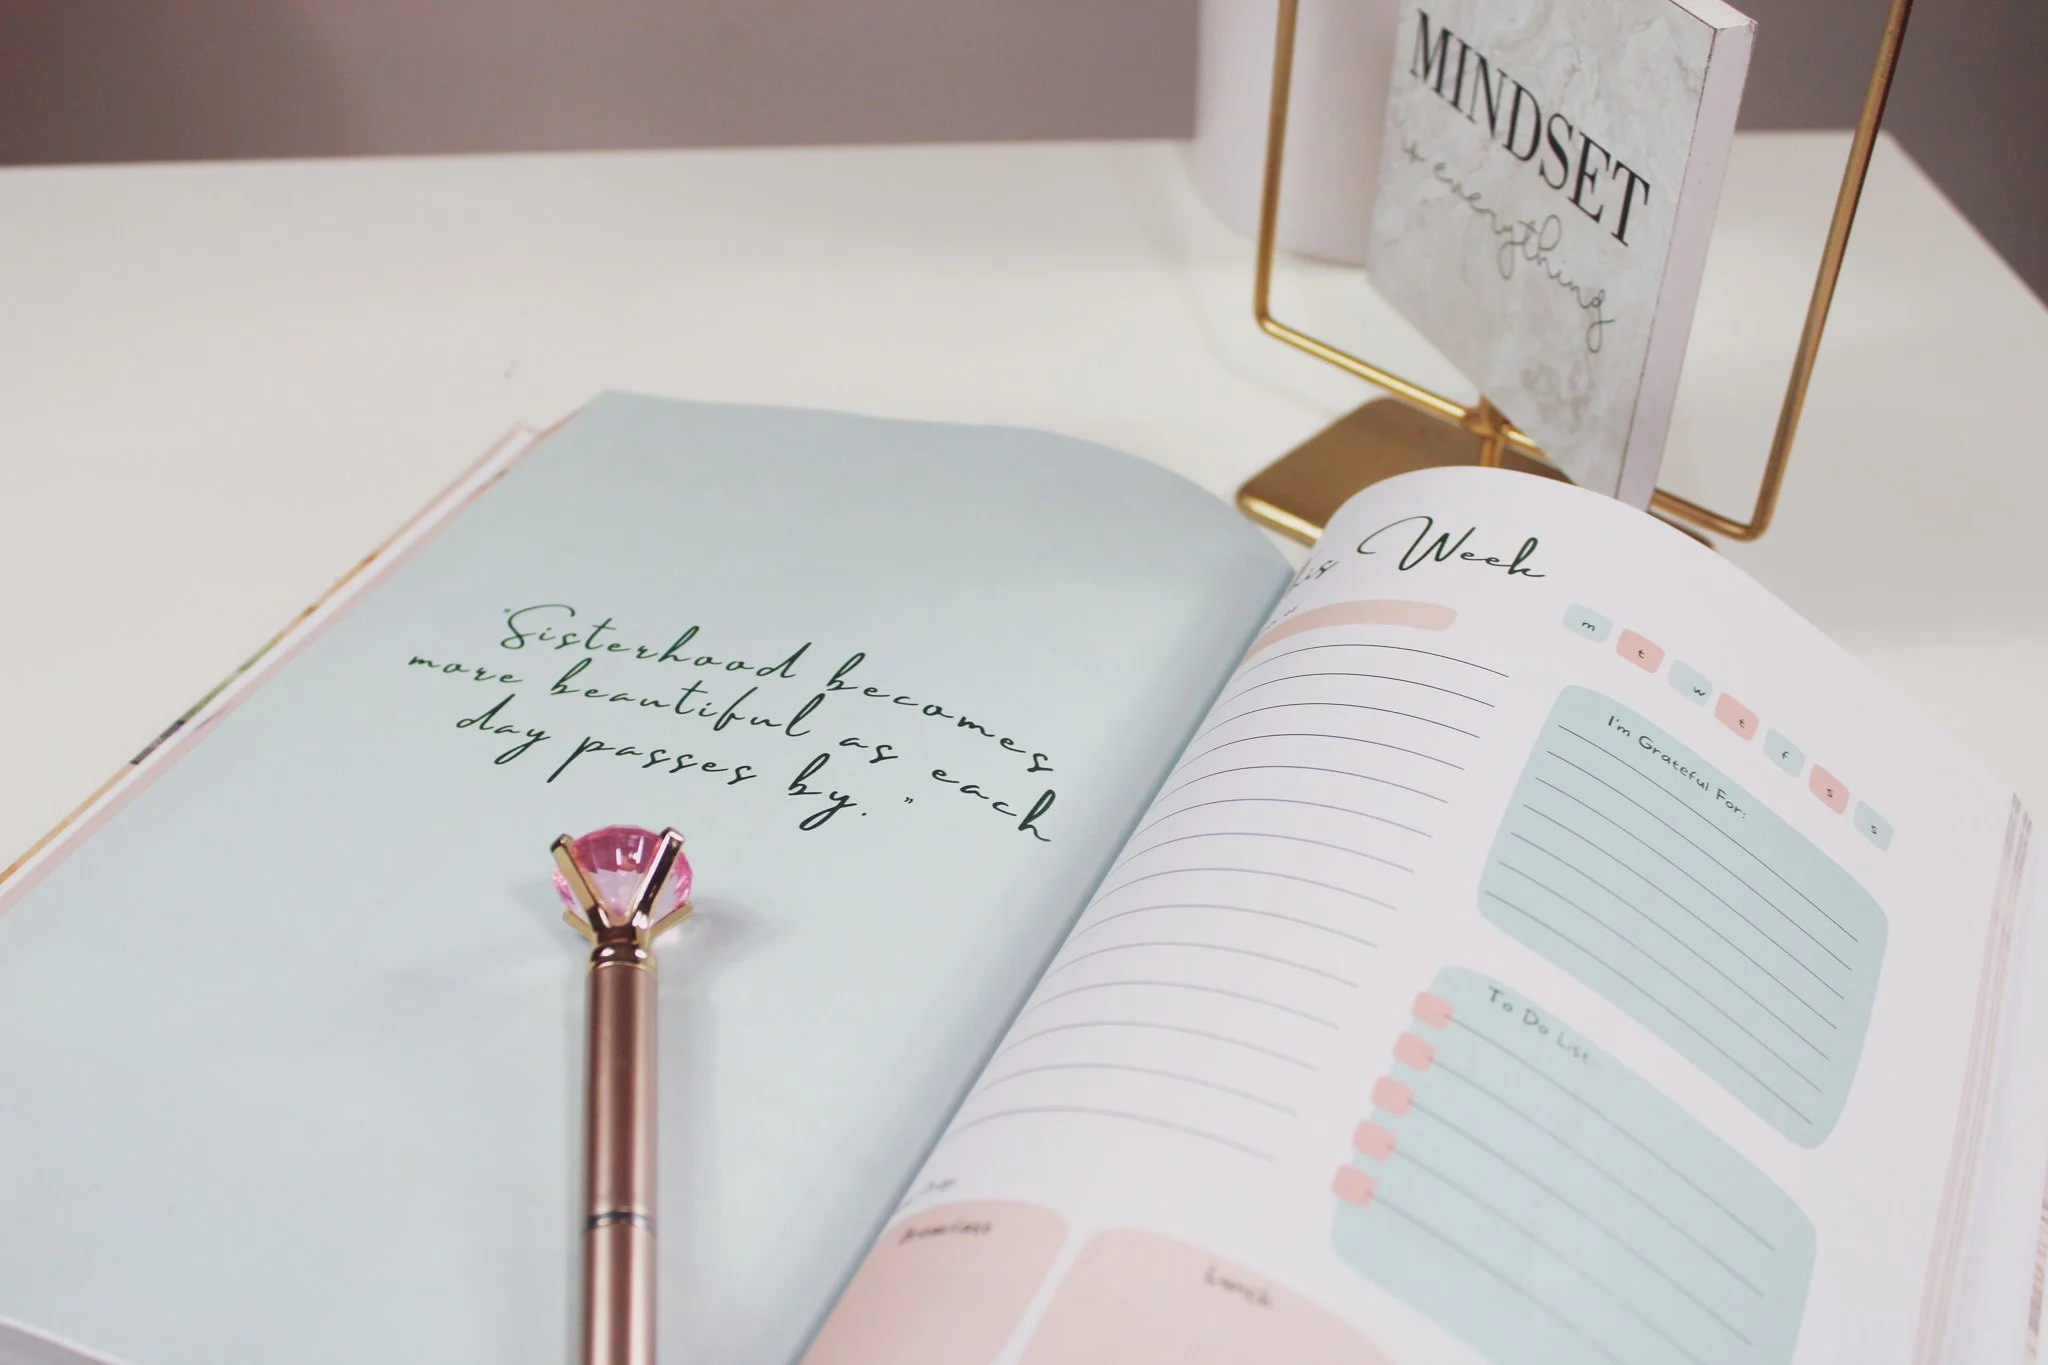 MINDSET
is everything
"Sisterhood becomes
more beautiful as each
day passes by."
Week
m t w t f s s
I'm Grateful For:
To Do List
Breakfast
Lunch